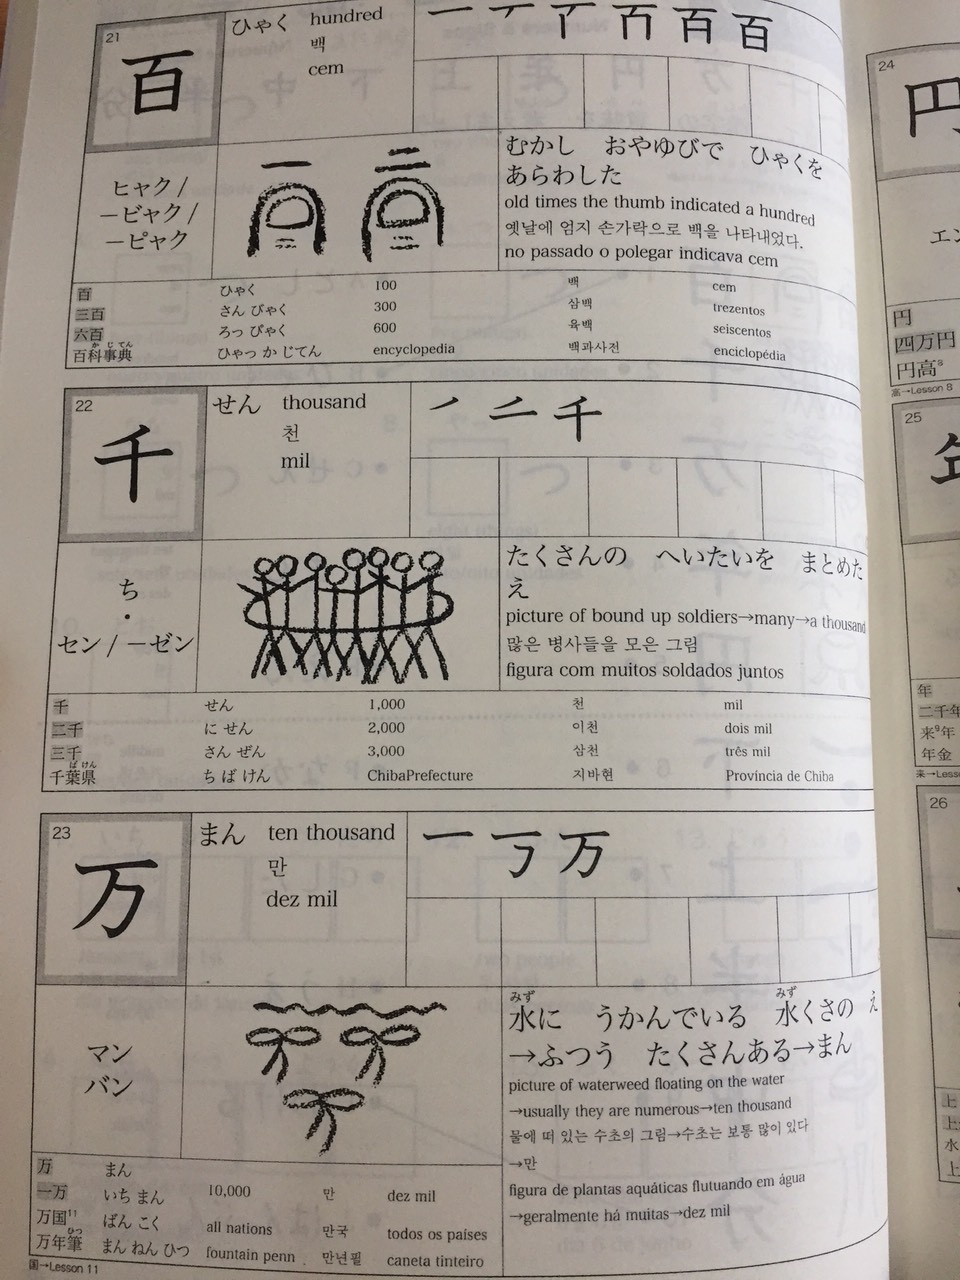 21
百
ひゃく hundred
백
cem
一 百 百
ヒャク /
－ビャク /
－ピャク
むかし おやゆびで ひゃくを
あらわした
old times the thumb indicated a hundred
옛날에 엄지 손가락으로 백을 나타내었다.
no passado o polegar indicava cem
百 ひゃく 100 백 cem
三百 さん びゃく 300 삼백 trezentos
六百 ろっ ぴゃく 600 육백 seiscentos
か じ てん
百科事典 ひゃっ か じてん encyclopedia 백과사전 enciclopédia
22
千
せん thousand
천
mil
ノ 二 千
ち
・
セン / －ゼン
たくさんの へいたいを まとめた
え
picture of bound up soldiers→many→a thousand
많은 병사들을 모은 그림
figura com muitos soldados juntos
千 せん 1,000 천 mil
二千 に せん 2,000 이천 dois mil
三千 さん ぜん 3,000 삼천 três mil
ば けん
千葉県 ち ば けん ChibaPrefecture 지바현 Província de Chiba
23
万
まん ten thousand
만
dez mil
一 万
マン
バン
みず みず
水に うかんでいる 水くさの え
→ふつう たくさんある→まん
picture of waterweed floating on the water
→usually they are numerous→ten thousand
물에 떠 있는 수초의 그림→수초는 보통 많이 있다
→만
figura de plantas aquáticas flutuando em água
→geralmente há muitas→dez mil
万 まん
一万 いち まん 10,000 만 dez mil
万国11 ばん こく all nations 만국 todos os países
ひつ
万年筆 まん ねん ひつ fountain penn 만년필 caneta tinteiro
国→Lesson 11
24
円
エン
円
四万円
円高8
高→Lesson 8
25
年
二千年
来9年
年金
来→Less
26
上
上
水
上